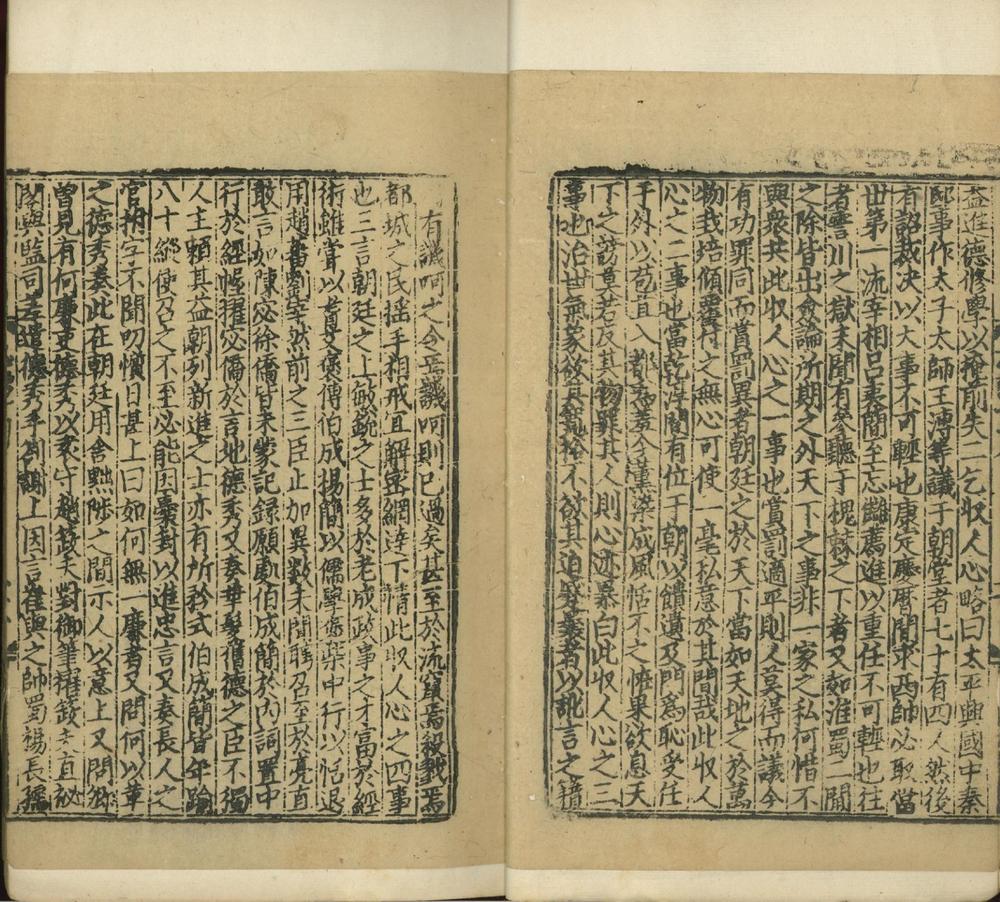 益進德修學以掩前失二乞收人心略曰太平興國中秦
邸事作太子太師王溥等議于朝堂者七十有四人然後
有詔裁决以大事不可輕也康定慶曆間求西帥必取當
世第一流宰相呂夷簡至忘讎薦進以重任不可輕也往
者霅川之獄未聞有參聽于槐棘之下者又如淮蜀二閫
之除皆出僉論所期之外天下之事非一家之私何惜不
與衆共此收人心之一事也賞罰適平則人莫得而議今
有功罪同而賞罰異者朝廷之於天下當如天地之於萬
物栽培傾覆付之無心可使一毫私意於其間哉此收人
心之二事也當乾淳間有位于朝以饋遺及門爲恥受任
手外以苞苴入都爲羞今薰染成風恬不之怪果欲息天
下之謗莫若反其物罪其人則心迹暴白此收人心之三
事也治世氣象欲其寬裕不欲其迫蹙曩者以訛言之籍
有譏呵之令焉譏呵則已過矣甚至於流竄焉殺戮焉
都城之民搖手相戒宜解密網達下情此收人心之四事
也三言朝廷之上敏銳之士多於老成政事之才富於經
術雖嘗以耆艾褒傅伯成楊簡以儒學褒柴中行以恬退
用趙蕃劉宰然前之三臣止加異數未聞聘召至於亮直
敢言如陳宓徐僑皆未蒙記録願處伯成簡於内祠置中
行於經幄擢宓僑於言地德秀又奏華髮舊德之臣不獨
人主賴其益朝列新進之士亦有所矜式伯成簡皆年踰
八十縱使召之不至必能因囊封以進忠言又奏長人之
官 字不聞叨懫日甚上曰如何無一廉者又問何以革
之德秀奏此在朝廷用舍黜陟之間示人以意上又問卿
曾見有何廉吏德秀以袁守趙 夫對御筆擢 夫直祕
閣與監司差遣德秀手劄謝上因言崔與之帥蜀楊長孺